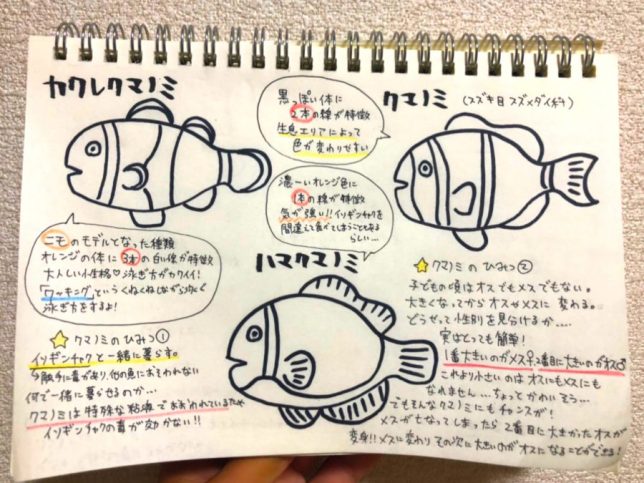 カクレクマノミ
ニモのモデルとなった種類
オレンジの体に3本の白い線が特徴
大人しい性格♡泳ぎ方がカワイイ!
「ワッキング」というくねくねしながら泳ぐ
泳ぎ方をするよ!
☆クマノミのひみつ①
イソギンチャクと一緒に暮らす。
触手に毒があり、他の魚におそわれない
何で一緒に暮らせるのか…
クマノミは特殊な粘液でおおわれているため
イソギンチャクの毒が効かない!!
黒っぽい体に
2本の線が特徴
生息エリアによって
色が変わりやすい
濃ーいオレンジ色に
1本の線が特徴
気が強い!!イソギンチャクを
間違えて食べてしまうこともある
らしい…
ハマクマノミ
クマノミ (スズキ目 スズメダイ科)
☆クマノミのひみつ②
子どもの頃はオスでもメスでもない。
大きくなってからオスやメスに変わる。
どうやって性別を見分けるか…
実はとっても簡単!
1番大きいのがメス♀2番目に大きいのがオス♂
これより小さいのはオスにもメスにも
なれません…ちょっとかわいそう…
でもそんなクマノミにもチャンスが!
メスが亡くなってしまったら2番目に大きかったオスが
変身!!メスに変わりその次に大きいのがオスになることができる!